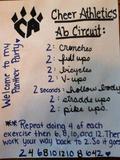 Cheer Athletics
Ab Circuit:
Welcome to my
Pammer Party
2: Crunches
2: full ups
2: bicycles
2: V-ups
2 seconds: hollow body
2: stradd ups
2: pike ups
Repeat doing 4 of each
exercise then 6, 8, 10, and 12. Then
work your way back to 2. So it goes
2 4 6 8 10 12 10 8 6 4 2